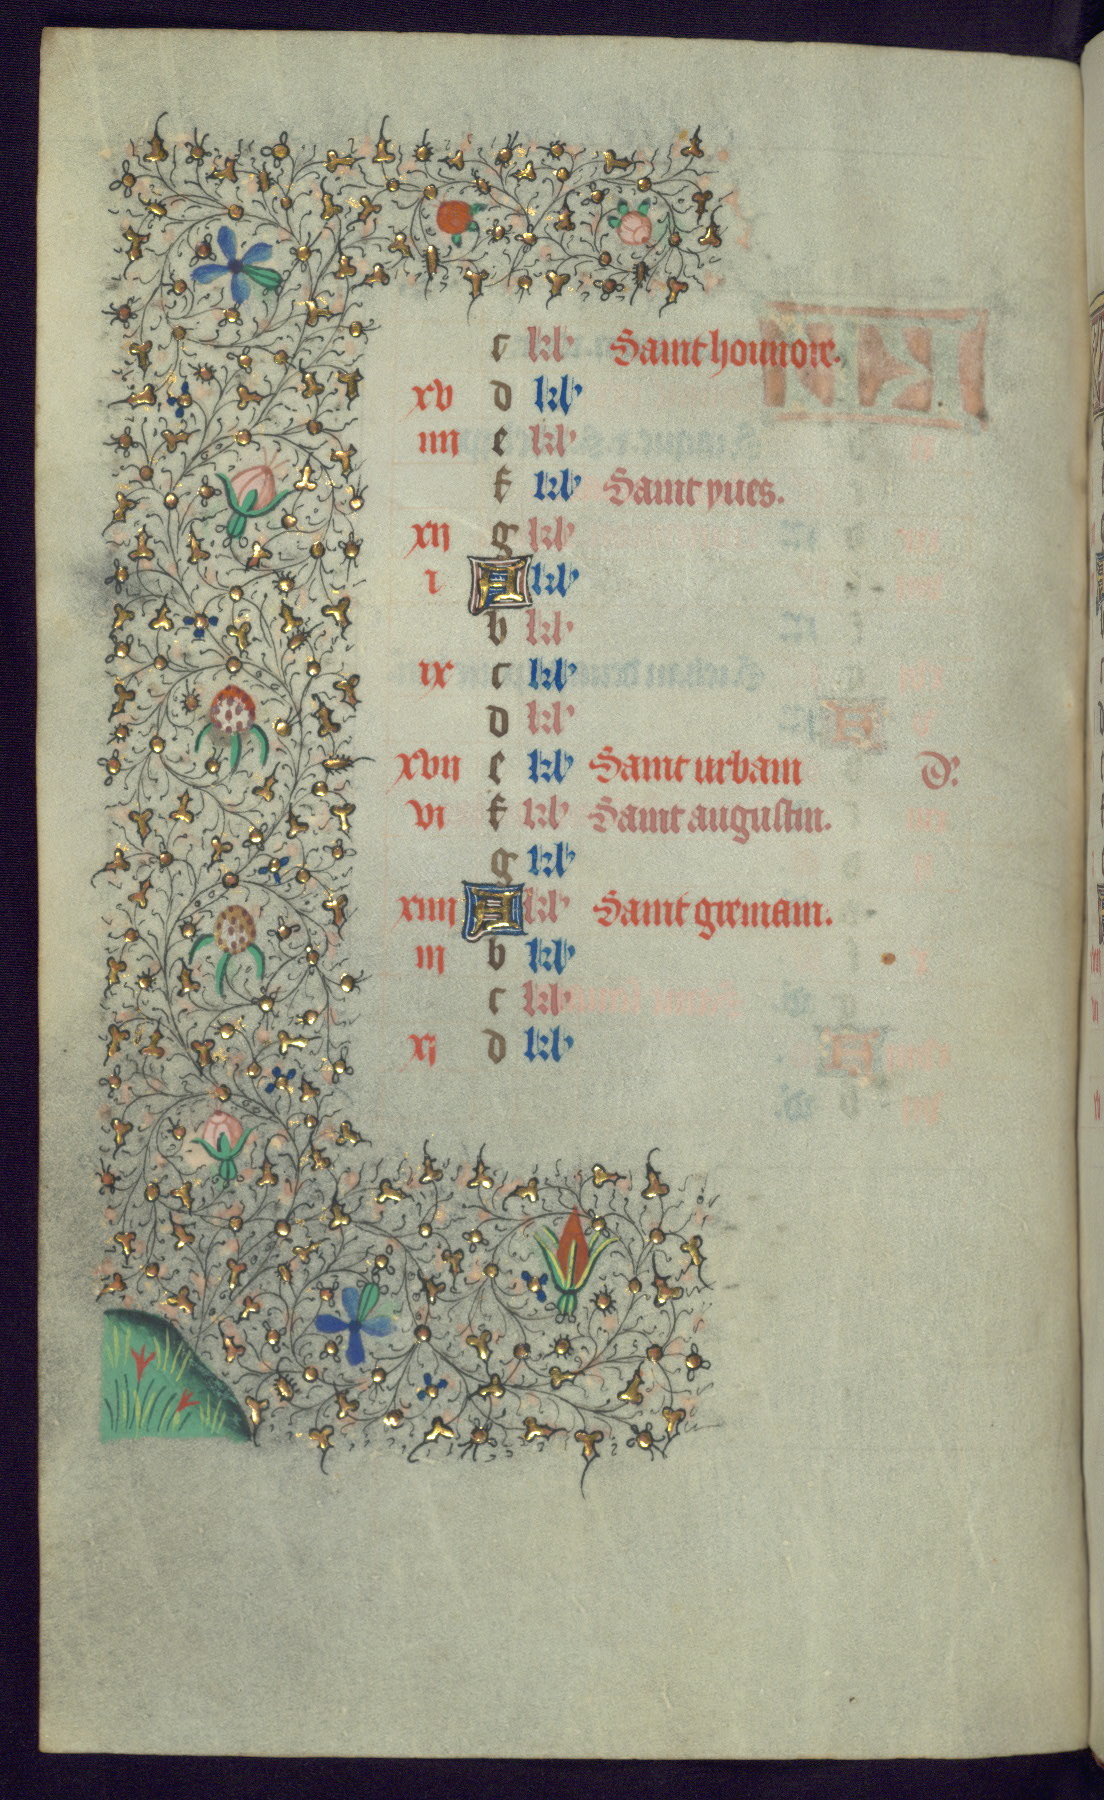 c kl' Saint honnore.
xv d kl'
iiii e kl'
f kl' Saint yues.
xii g kl'
i A kl'
b kl'
ix c kl'
d kl'
xvii e kl' Saint urbain D.
vi f kl' Saint augustin.
g kl'
xiiii A kl' Saint giemain.
iii b kl'
c kl'
xi d kl'